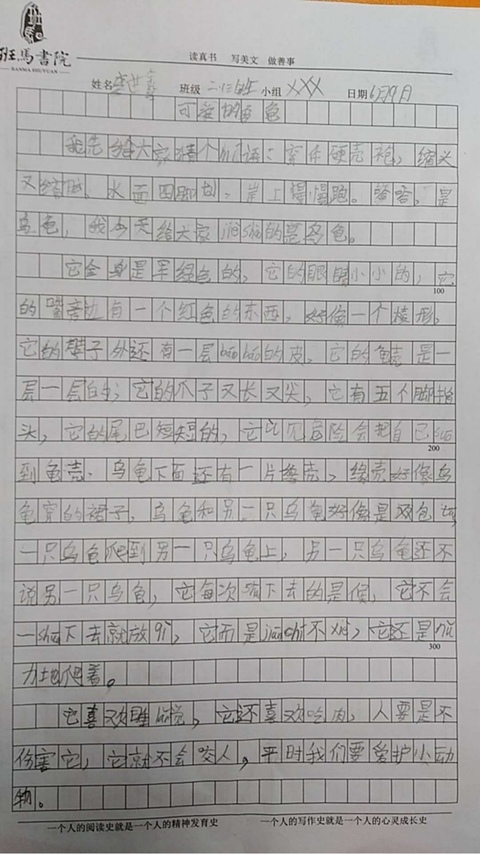 班馬書院
BANMA SHUYUAN
读真书 写美文 做善事
姓名 班级 二(三)班 小组 XXX 日期 6月9月
可爱的乌龟
我先给大家猜个 语：穿件硬壳袍，缩头
又缩脑。水面四脚划，岸上慢慢跑。答答，是
乌龟，我今天给大家 的是乌龟。
它全身是军绿色的，它的眼睛小小的，它
100
的嘴旁边有一个红色的东西，好像一个棱形，
它的脖子外还有一层 的皮，它的龟壳是一
层一层的；它的爪子又长又尖，它有五个脚指
头，它的尾巴短短的，它 见危险会把自己
200
到龟壳。乌龟下面还有一片 壳， 壳好像乌
龟穿的裙子，乌龟和另一只乌龟好像是双包
一只乌龟爬到另一只乌龟上，另一只乌龟还不
说另一只乌龟，它每次 下去的是候，它不会
一 下去就放 ，它而是 不 ，它还是
300
力地爬着。
它喜欢睡 觉，它还喜欢吃肉，人要是不
伤害它，它就不会咬人，平时我们要爱护小动
物。
一个人的阅读史就是一个人的精神发育史 一个人的写作史就是一个人的心灵成长史